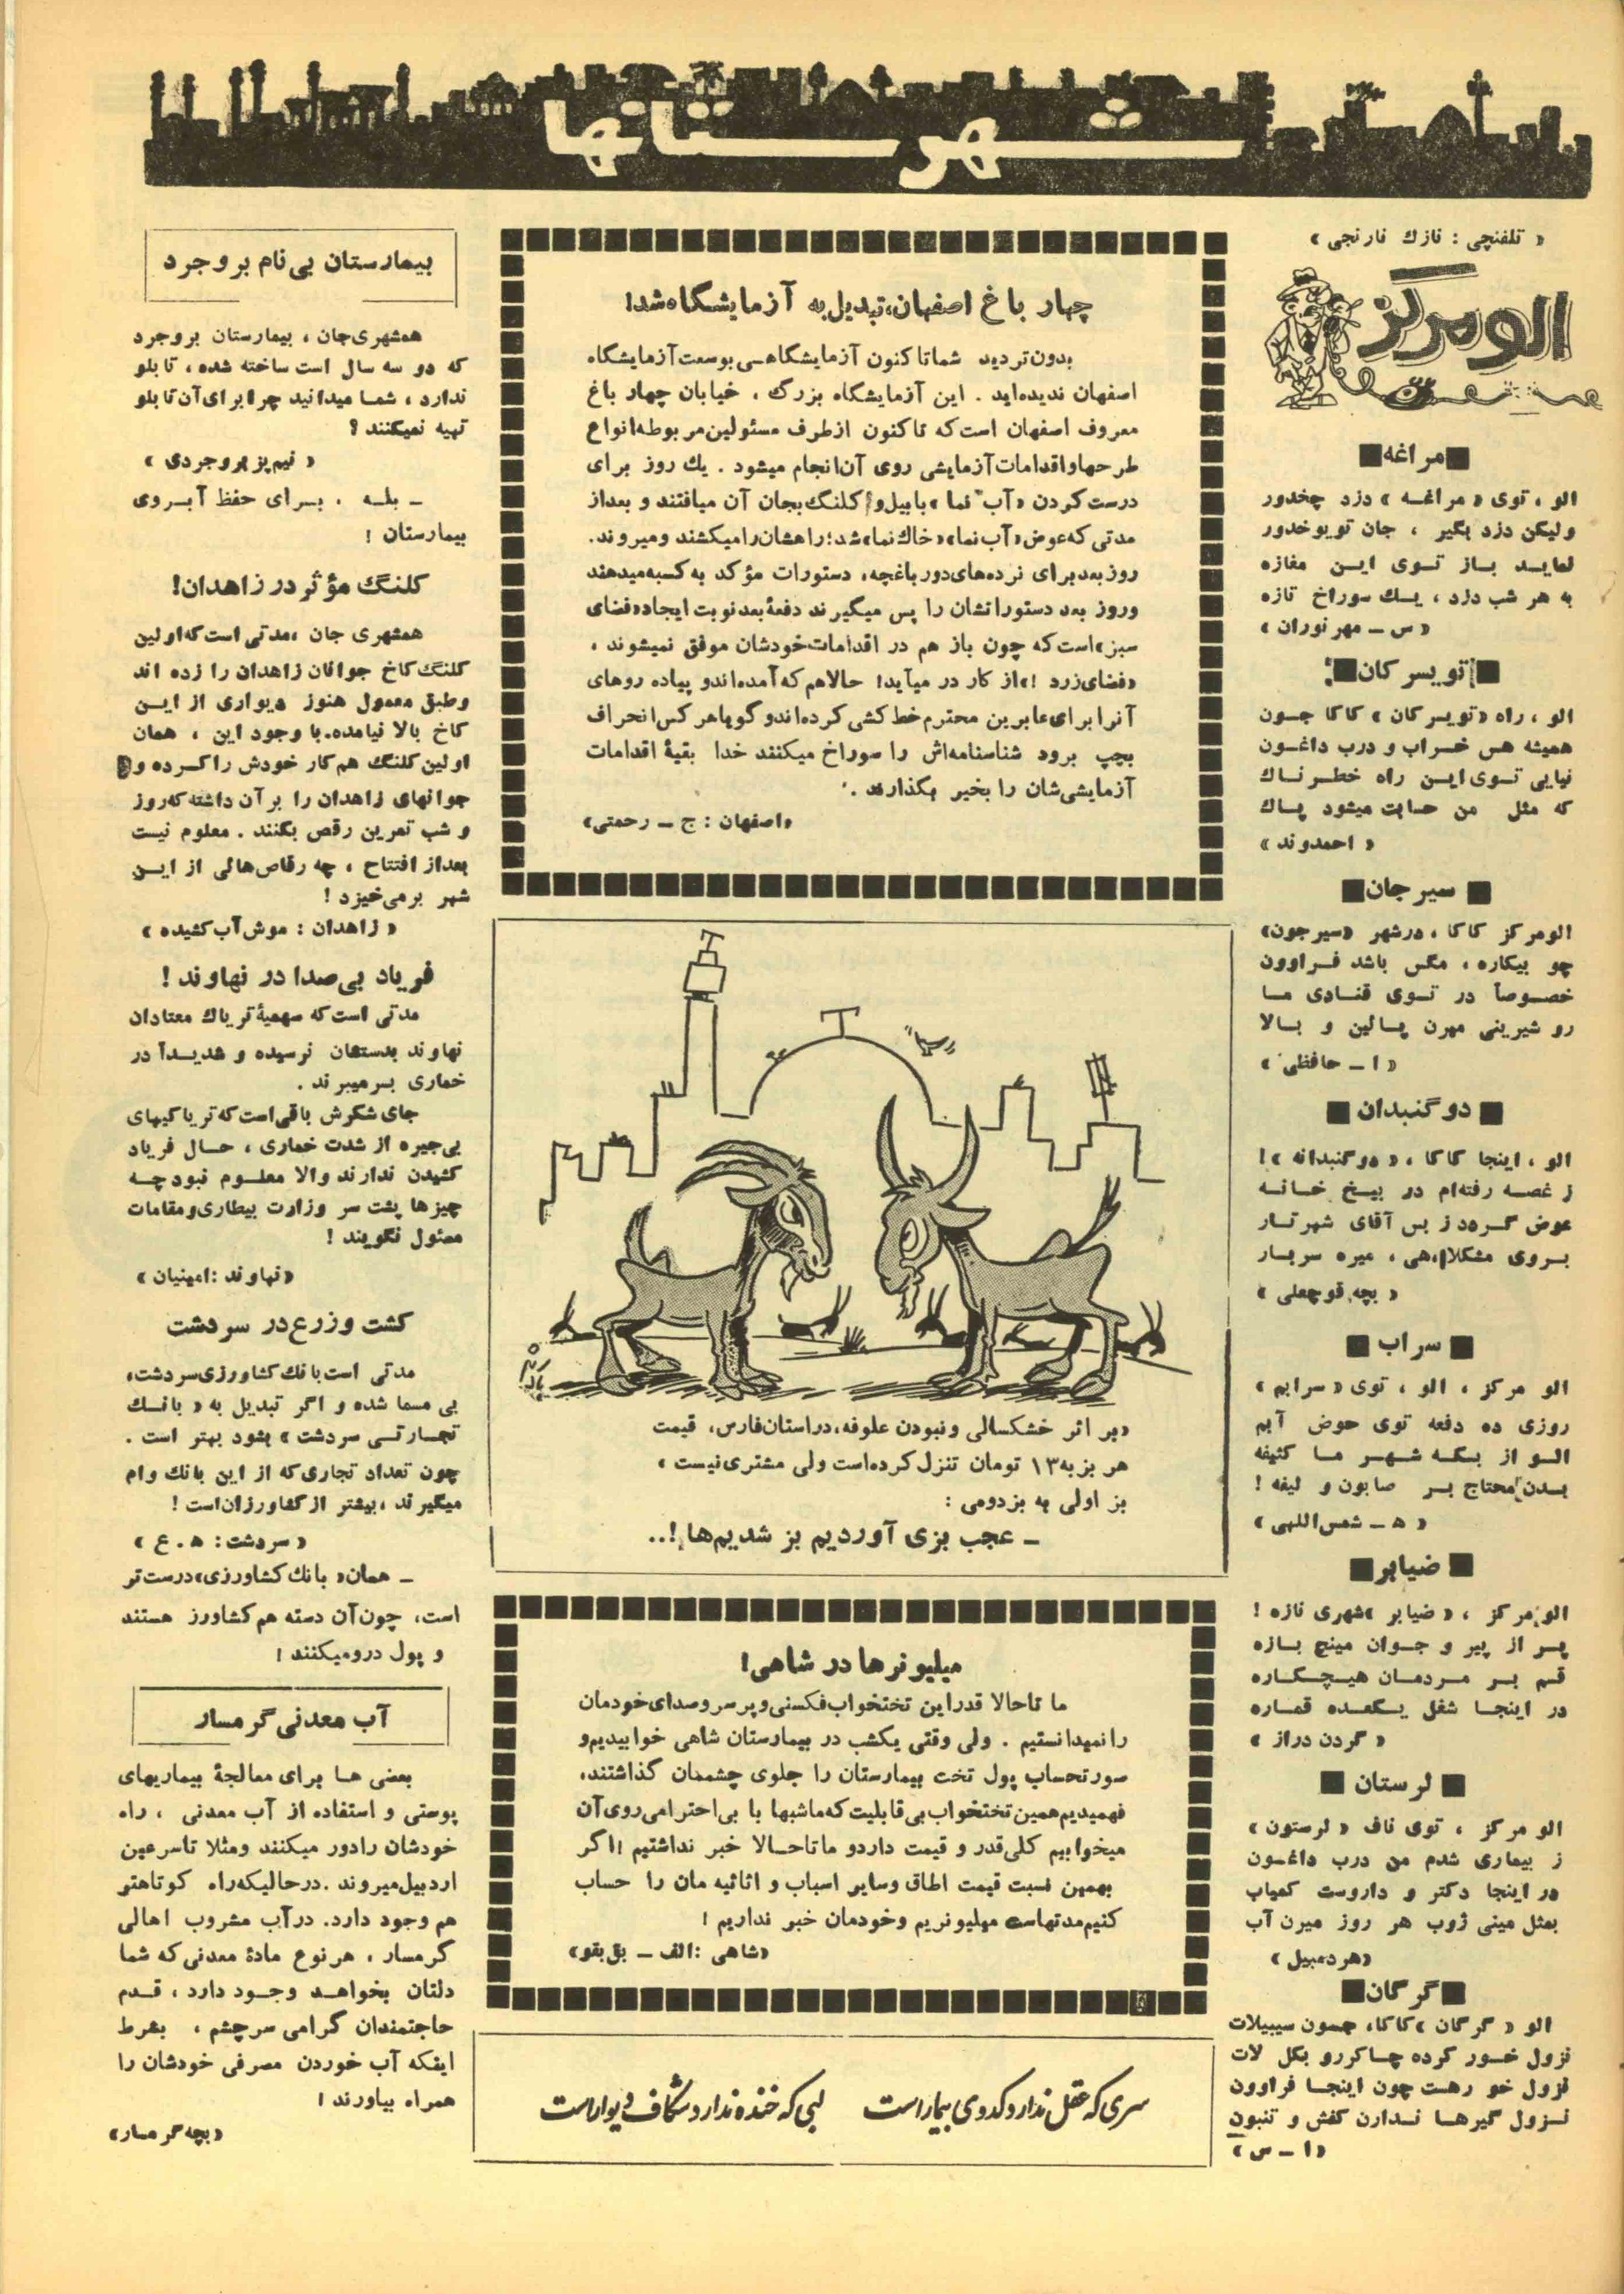 شهرستانها
« تلفنچی : نازك نارنجی »
الومرکز
■مراغه■
الو ، توی « مراغـه » دزد چخدور
ولیکن دزد بگیر ، جان تویوخدور
نماید بـاز تـوی ایـن مغازه
به هر شب دزد ، یـك سوراخ تازه
« س ـ مهر نوران »
■تویسرکان■
الو ، راه «تویسرکان» کاکا جـون
همیشه هس خـراب و درب داغـون
نیایی تـوی ایـن راه خطـرنـاك
که مثل من حسابت میشود پـاك
« احمدوند »
■ سیرجان■
الومرکز کاکا ، درشهر «سیرجون»
چو بیکاره ، مگس باشد فـراوون
خصـوصاً در تـوی قنادی مـا
رو شیرینی میرن پـائین و بـالا
« ا ـ حافظی »
■ دوگنبدان ■
الو ، اینجا کاکا ، « دوگنبدانه »!
ز غصـه رفته‌ام در بیـخ خـانـه
عوض گـردد ز بس آقای شهر تـار
بـروی مشکلا،هی ، میره سربـار
« بچه قوچعلی »
■ سراب ■
الو مرکز ، الو ، توی « سرابم »
روزی ده دفعه توی حوض آبم
الـو از بـکـه شـهـر مـا کثیفه
بـدن محتاج بـر صابون و لیفه !
« ه ـ شمس‌اللهی »
■ ضیابر■
الو مرکز ، « ضیابر »شهری نازه !
پـر از پیر و جـوان مینچ بـازه
قـم بـر مـردمـان هیـچـکـاره
در اینجـا شغل یـکعـده قمـاره
« گردن دراز »
■ لرستان ■
الو مرکز ، توی ناف « لرستون »
ز بیماری شدم من درب داغـون
در اینجا دکتر و داروست کمیاب
بمثل مینی ژوب هر روز میرن آب
«هردمبیل »
■گرگان■
الو « گرگان »کاکا، جمـون سیبیلات
نزول خـور کرده چـاکررو بکل لات
نزول خو رهست چون اینجـا فراوون
نـزول گیرهـا نـدارن کفش و تنبون
«ا ـ س»
چهار باغ اصفهان،تبدیل به آزمایشگاه‌شد!
بدون‌تردید شما تاکنون آزمایشگاهـی بوسعت آزمایشگاه
اصفهان ندیده‌اید . این آزمایشگاه بزرگ ، خیابان چهار باغ
معروف اصفهان است که تاکنون ازطرف مسئولین مربوطه‌انواع
طرحها و اقدامات آزمایشی روی آن‌انجام میشود . یك روز برای
درست کردن «آب نما »با بیل و کلنگ بجان آن میافتند و بعداز
مدتی که عوض«آب نما»«خاك نما»شد؛راهشان‌را میکشند و میروند.
روز بعد برای نرده‌های دور باغچه، دستورات مؤکد به کسبه میدهند
وروز بعد دستوراتشان را پس میگیرند دفعهٔ بعد نوبت ایجاد«فضای
سبز»است که چون باز هم در اقدامات‌خودشان موفق نمیشوند ،
«فضای زرد !»از کار در میآید! حالاهم که آمده‌اندو پیاده روهای
آنرا برای عابرین محترم خط کشی کرده‌اندو گویا هرکس انحراف
بچپ برود شناسنامه‌اش را سوراخ میکنند خدا بقیهٔ اقدامات
آزمایشی‌شان را بخیر بگذارند .
«اصفهان : ج ـ رحمتی»
«بر اثر خشکسالی ونبودن علوفه،دراستان‌فارس، قیمت
هر بز به۱۳ تومان تنزل کرده‌است ولی مشتری نیست »
بز اولی به بزدومی :
ـ عجب بزی آوردیم بز شدیم‌ها!..
میلیونرها در شاهی!
ما تاحالا قدراین تختخواب‌فکسنی‌وپرسروصدای‌خودمان
را نمیدانستیم . ولی وقتی یکشب در بیمارستان شاهی خوابیدیم‌و
صورتحساب پول تخت بیمارستان را جلوی چشممان گذاشتند،
فهمیدیم‌همین تختخواب بی‌قابلیت که‌ماشبها با بی‌احترامی‌روی‌آن
میخوابیم کلی‌قدر و قیمت داردو ما تاحـالا خبر نداشتیم !اگر
بهمین نسبت قیمت اطاق وسایر اسباب و اثاثیه مان را حساب
کنیم‌مدتهاست میلیونریم وخودمان خبر نداریم !
«شاهی :الف ـ بق بقو»
سری که عقل ندارد کدوی بیمار است
لبی که خنده ندارد شکاف دیوار است
بیمارستان بی‌نام بروجرد
همشهری‌جان ، بیمارستان بروجرد
که دو سه سال است ساخته شده ، تابلو
ندارد ، شمـا میدانید چرا برای‌آن تابلو
تهیه نمیکنند ؟
« نیم‌پز بروجردی »
ـ بلـه ، بـرای حفظ آبـروی
بیمارستان !
کلنگ مؤثر در زاهدان!
همشهری جان ،مدتی است که‌اولین
کلنگ کاخ جوانان زاهدان را زده اند
وطبق معمول هنوز دیواری از ایـن
کاخ بالا نیامده.با وجود این ، همان
اولین کلنگ هم کار خودش را کـرده و
جوانهای زاهدان را بر آن داشته که روز
و شب تمرین رقص بکنند . معلوم نیست
بعداز افتتاح ، چه رقاص‌هائی از ایـن
شهر برمی‌خیزد !
« زاهدان : موش آب کشیده »
فریاد بی‌صدا در نهاوند !
مدتی است که سهمیهٔ تریاك معتادان
نهاوند بدستشان نرسیده و شدیـداً در
خماری بسر میبرند .
جای شکرش باقی‌است که تریاکیهای
بی‌جیره از شدت خماری ، حـال فریاد
کشیدن ندارند والا معلـوم نبود چـه
چیزها پشت سر وزارت بیطاری‌ومقامات
مسئول نگویند !
«نهاوند :امینیان»
کشت وزرع در سردشت
مدتی است با نك کشاورزی سردشت،
بی مسما شده و اگر تبدیل به « بانـك
تجـارتـی سردشت » بشود بهتر است .
چون تعداد تجاری که از این بانك وام
میگیرند ،بیشتر از کشاورزان‌است !
« سردشت: ه . ع »
ـ همان« بانك کشاورزی»درست‌تر
است، چون‌آن دسته هم کشاورز هستند
و پول درومیکنند !
آب معدنی گرمسار
بعضی هـا برای معالجهٔ بیماریهای
پوستی و استفاده از آب معدنی ، راه
خودشان رادور میکنند ومثلا تاسرعین
اردبیل میروند .درحالیکه‌راه کوتاهتر
هم وجود دارد. درآب مشروب اهالی
گرمسار ، هرنوع مادهٔ معدنی که شما
دلتان بخواهـد وجـود دارد ، قـدم
حاجتمندان گرامی سرچشم ، بشرط
اینکه آب خوردن مصرفی خودشان را
همراه بیاورند !
«بچه گرمسار»